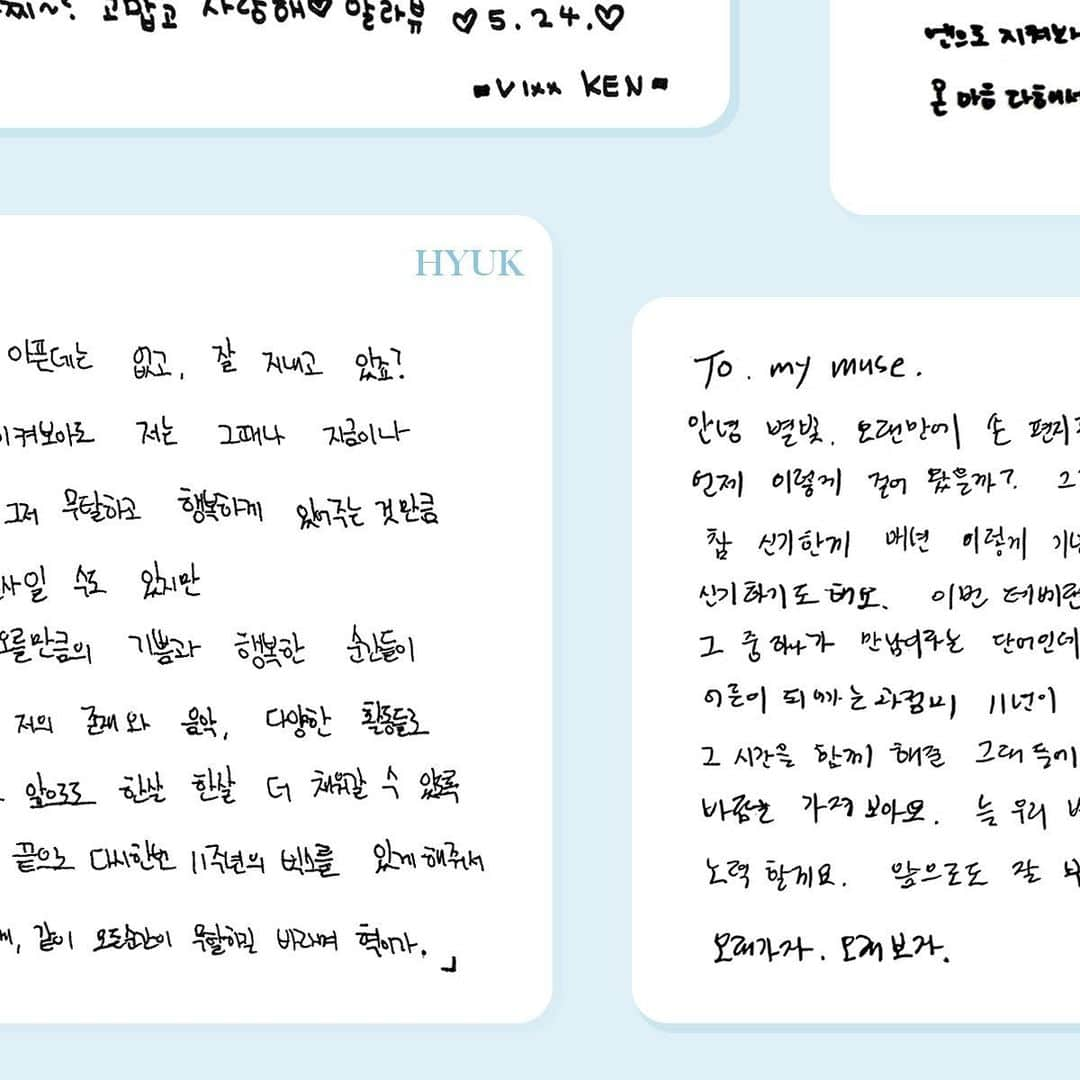 고맙고 사랑해♡ 알라뷰 ♡5.24.♡
VIXX KEN
지켜보
온 마음 다해서
HYUK
아픈데는 없고, 잘 지내고 있죠?
저는 그때나 지금이나
그저 무탈하고 행복하게 있어주는 것만큼
수도 있지만
기쁨과 행복한 순간들이
저의 존재와 음악, 다양한 활동들로
앞으로도 한살 한살 더 채워갈 수 있도록
끝으로 다시한번 11주년의 빅스를 있게 해주셔서
같이 모든순간이 무탈하길 바라며 혁이가.」
To. my muse.
안녕 별빛. 오랜만에 손 편지
언제 이렇게 걸어 왔을까?
참 신기한게 매년 이렇게
신기하기도 해요. 이번
그 중 하나가 만남이라는 단어인데
어른이 되어가는 과정이 11년이
그 시간을 함께 해준 그대들에
바람을 가져 보아요. 늘 우리
노력 할게요. 앞으로도 잘
오래가자. 오래 보자.